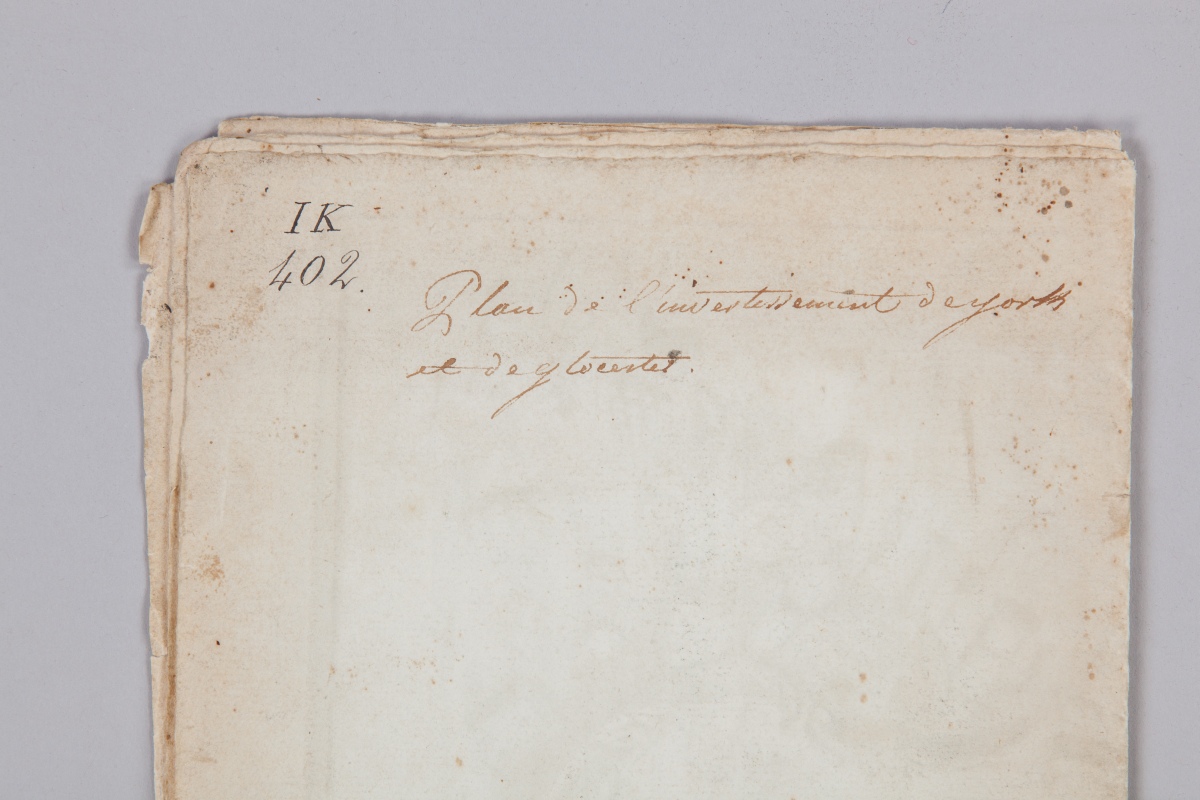 IK
402.
Plan de l'invertissement de york
et de glocester.